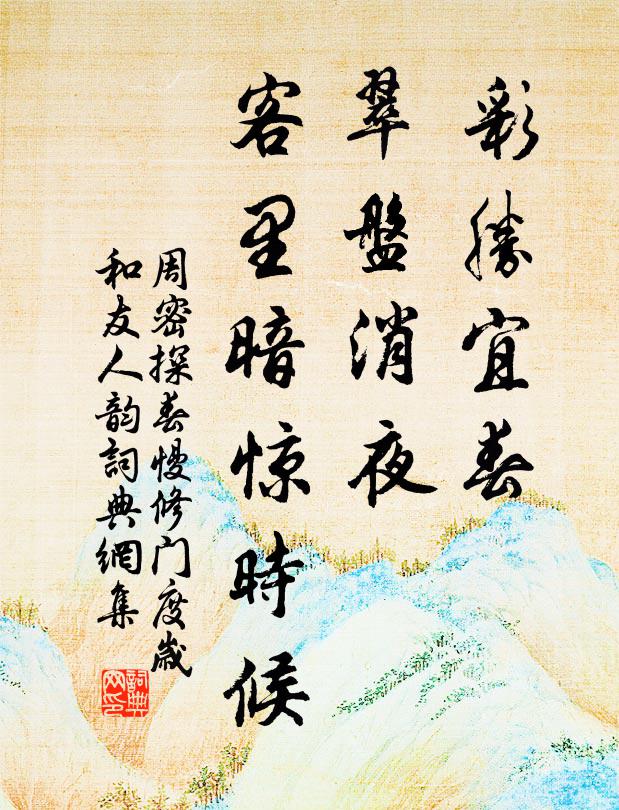 彩勝宜春
翠盤消夜
客里暗惊時候
周密探春慢修門度歲
和友人韵詞典網集
詞典
网印